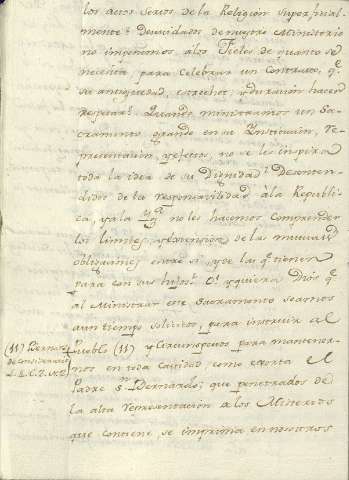 los actos serios de la Religion superficial-
mente: Descuidados de nuestro Ministerio
no imponemos, alos Fieles de quanto se
necesita para Celebrar un Contrato, q.e
su antiguedad, estrechez, y duracion hacen
respetar. Quando ministramos un Sa-
cramento grande en su Institucion, re-
presentacion, y efectos, no se les inspira
toda la idea de su Dignidad. Desenten-
didos de la responsavilidad à la Republi-
ca, y a la Yg.a no les hacemos comprender
los limites, y extension de las mutuas
obligaciones entre si, y de la q.e tienen
para con sus hijos. O! y quiera Dios q.e
al Ministrar este Sacramento seamos
aun tiempo solicitos para instruir al
Pueblo (11) y Circunspectos para mantener-
nos en toda Castidad, como exorta el
Padre S.n Bernardo; que penetrados de
la alta representacion a los Misterios
que contiene, se imprima en nosotros
(11) Bernard.
de Considerat.